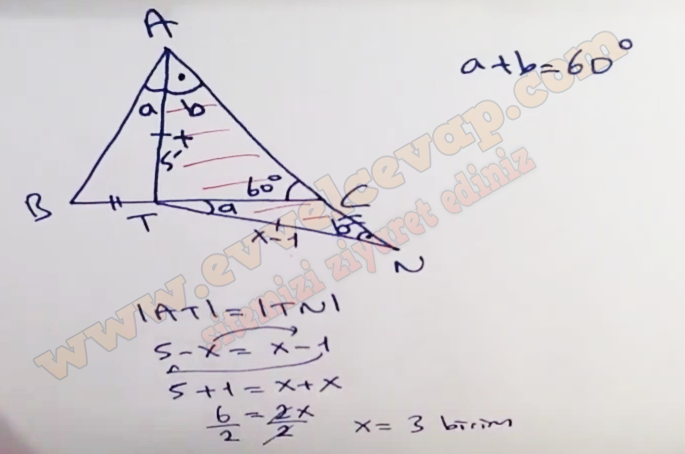 A
a+b=60°
a b
5
60°
B T a C
x-1 b
N
|AT| = |TN|
5-x = x-1
5+1 = x+x
6/2 = 2x/2 x= 3 birim
www.evvelcevap.com
sitemizi ziyaret ediniz